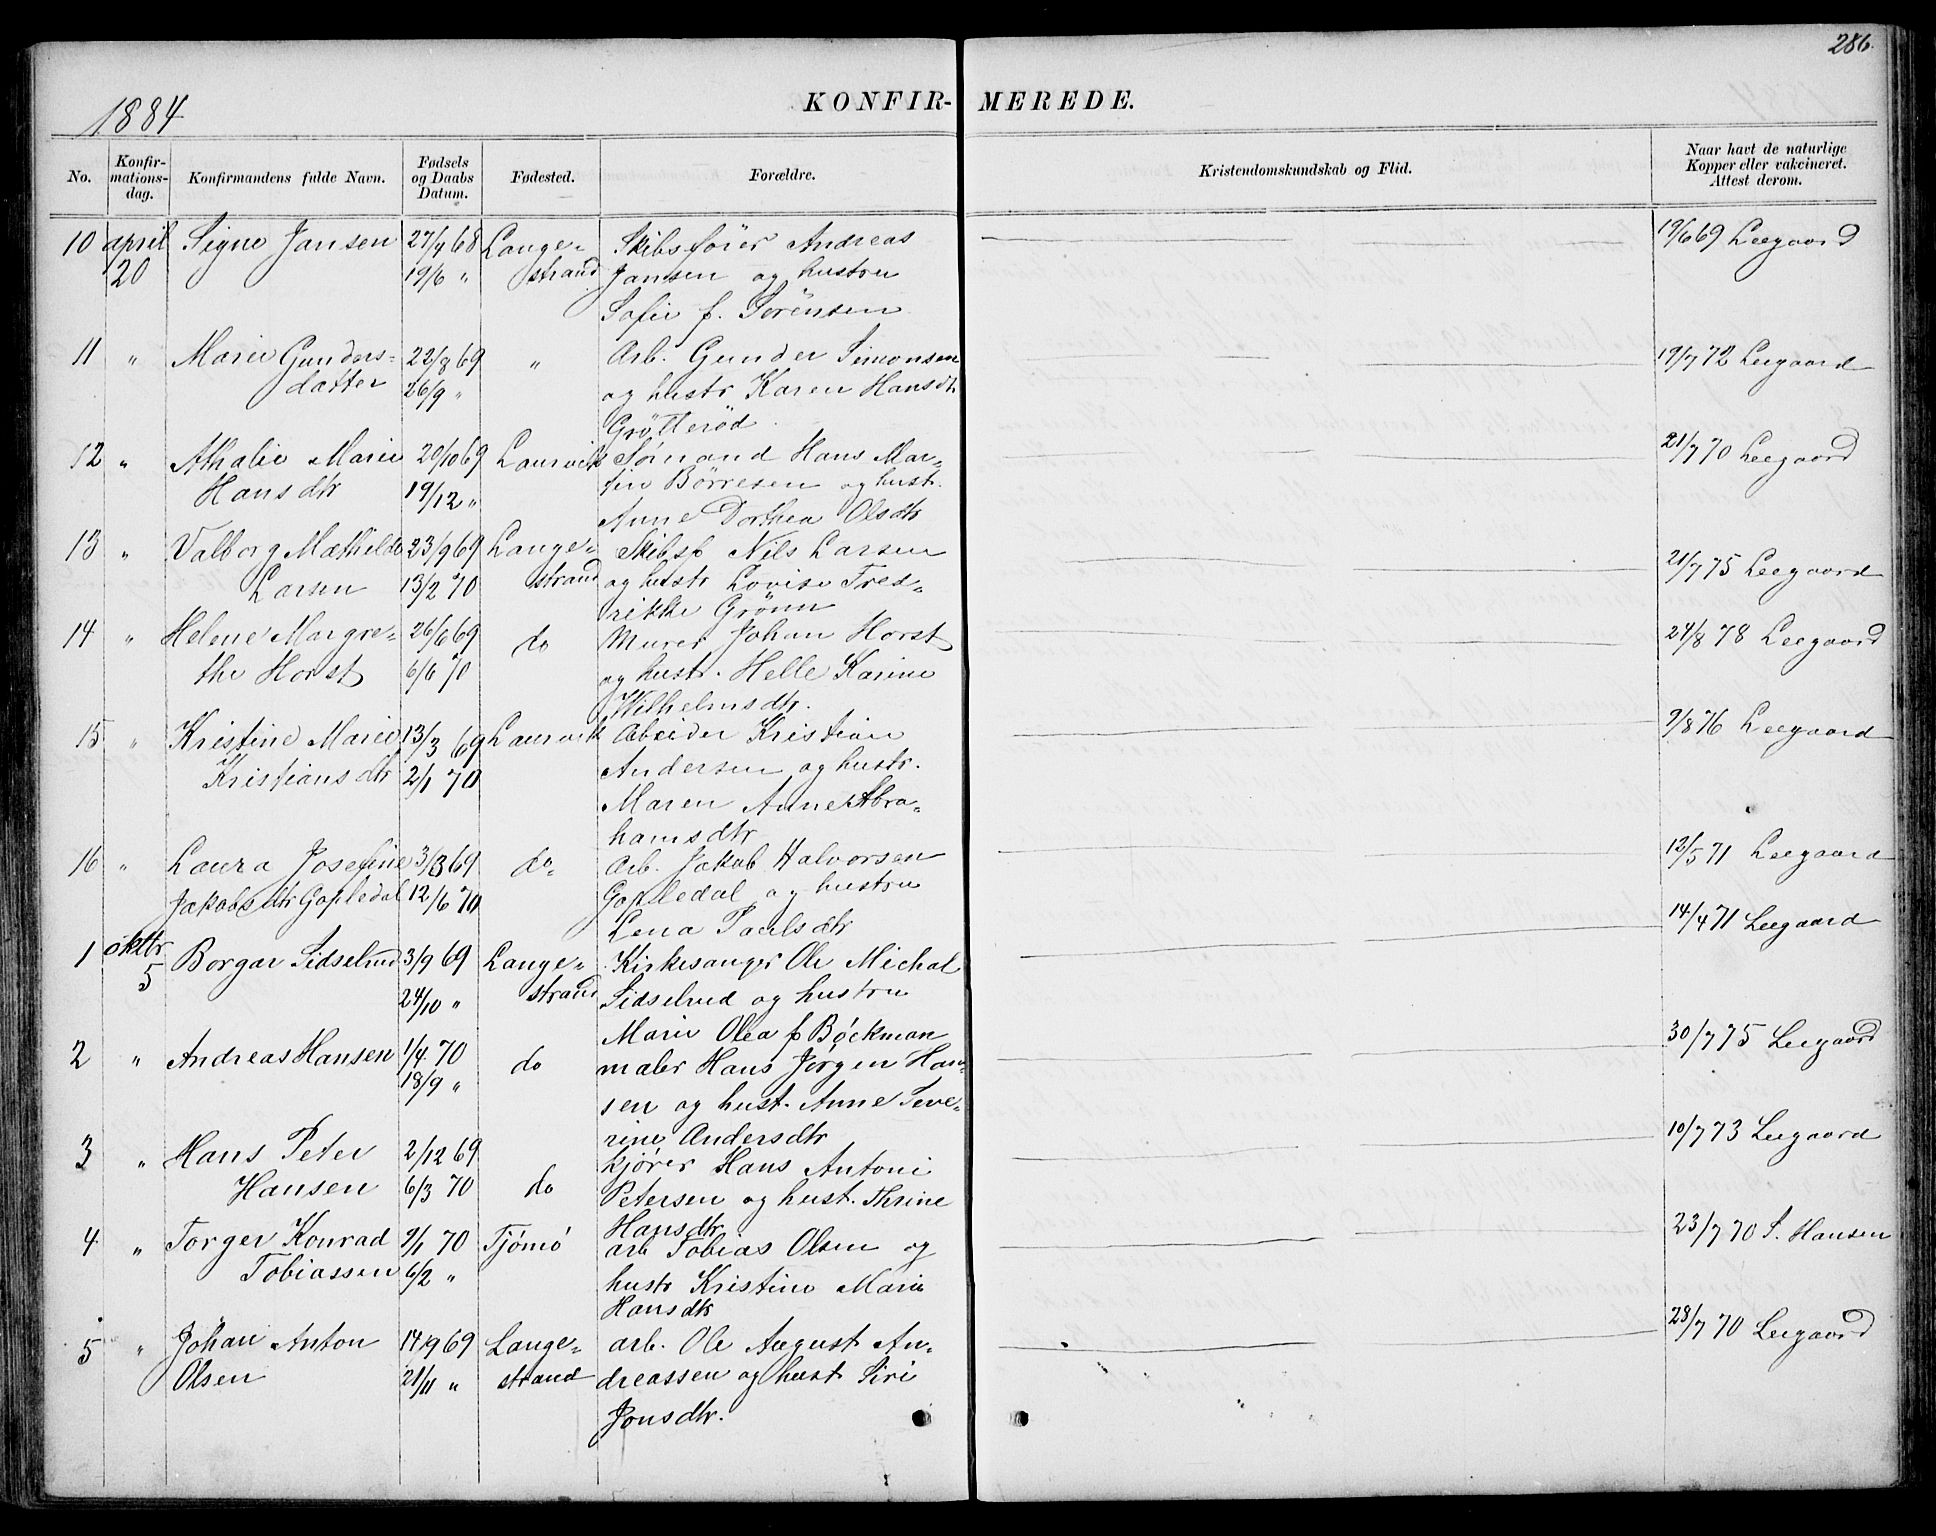 286.
1884
KONFIR- MEREDE.
No.
Konfir-
mations-
dag.
Konfirmandens fulde Navn.
Fødsels
og Daabs
Datum.
Fødested.
Forældre.
Kristendomskundskab og Flid.
Naar havt de naturlige
Kopper eller vakcineret.
Attest derom.
10 april Signe Jansen 27/4 68 Lange- Skibsfører Andreas 19/6 69 Leegaard
20 19/6 " strand Jansen og hustru
Sofie f. Sörensen
11 " Marie Gunders- 22/8 69 " Arb. Gunder Simonsen 19/7 72 Leegaard
datter 26/9 " og hustr Karen Hansdtr
Grötteröd.
12 " Athalie Marie 20/10 69 Laurvik Sømand Hans Mar- 21/7 70 Leegaard
Hansdtr 19/12 " tin Börresen og hustr.
Anne Dorthea Olsdtr
13 " Valborg Mathilde 23/9 69 Lange- Skibsf Nils Larsen 21/7 75 Leegaard
Larsen 13/2 70 strand og hustr Lovise Fred-
rikke Grönn
14 " Helene Margre- 26/6 69 do Murer Johan Horst 24/8 78 Leegaard
the Horst 6/6 70 og hustr. Helle Karine
Wilhelmsdtr.
15 " Kristine Marie 13/3 69 Laurvik Abeider Kristian 9/8 76 Leegaard
Kristiansdtr 2/1 70 Andersen og hustr.
Maren Anne Abra-
hamsdtr
16 " Laura Josefine 3/3 69 do. Arb. Jakob Halvorsen 12/5 71 Leegaard
Jakobsdtr Gopledal 12/6 70 Gopledal og hustru
Lena Paulsdtr
1 oktbr Borgar Sidselrud 3/9 69 Lange- Kirkesanger Ole Michal 14/4 71 Leegaard
5 24/10 " strand Sidselrud og hustru
Marie Olea f Böckman
2 " Andreas Hansen 1/4 70 do maler Hans Jørgen Han- 30/7 75 Leegaard
18/9 " sen og hust. Anne Seve-
rine Andersdtr
3 " Hans Peter 2/12 69 kjører Hans Antoni 10/7 73 Leegaard
Hansen 6/3 70 do Petersen og hust. Thrine
Hansdtr
4 " Torger Konrad 9/1 70 Tjömö arb Tobias Olsen og 23/7 70 S. Hansen
Tobiassen 6/2 " hustr Kristine Marie
Hansdtr
5 " Johan Anton 14/9 69 Lange- arb. Ole August An- 28/7 70 Leegaard
Olsen 21/11 " strand dreassen og hust Siri
Jonsdtr.